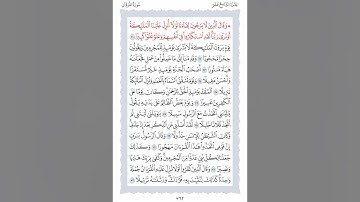 الجزء التاسع عشر
سورة الفرقان
۞ وَقَالَ ٱلَّذِينَ لَا يَرۡجُونَ لِقَآءَنَا لَوۡلَآ أُنزِلَ عَلَيۡنَا ٱلۡمَلَٰٓئِكَةُ
أَوۡ نَرَىٰ رَبَّنَاۗ لَقَدِ ٱسۡتَكۡبَرُواْ فِيٓ أَنفُسِهِمۡ وَعَتَوۡ عُتُوّٗا كَبِيرٗا ٢١
يَوۡمَ يَرَوۡنَ ٱلۡمَلَٰٓئِكَةَ لَا بُشۡرَىٰ يَوۡمَئِذٖ لِّلۡمُجۡرِمِينَ وَيَقُولُونَ
حِجۡرٗا مَّحۡجُورٗا ٢٢ وَقَدِمۡنَآ إِلَىٰ مَا عَمِلُواْ مِنۡ عَمَلٖ فَجَعَلۡنَٰهُ
هَبَآءٗ مَّنثُورًا ٢٣ أَصۡحَٰبُ ٱلۡجَنَّةِ يَوۡمَئِذٍ خَيۡرٞ مُّسۡتَقَرّٗا
وَأَحۡسَنُ مَقِيلٗا ٢٤ وَيَوۡمَ تَشَقَّقُ ٱلسَّمَآءُ بِٱلۡغَمَٰمِ وَنُزِّلَ ٱلۡمَلَٰٓئِكَةُ
تَنزِيلًا ٢٥ ٱلۡمُلۡكُ يَوۡمَئِذٍ ٱلۡحَقُّ لِلرَّحۡمَٰنِۚ وَكَانَ يَوۡمًا عَلَى
ٱلۡكَٰفِرِينَ عَسِيرٗا ٢٦ وَيَوۡمَ يَعَضُّ ٱلظَّالِمُ عَلَىٰ يَدَيۡهِ يَقُولُ
يَٰلَيۡتَنِي ٱتَّخَذۡتُ مَعَ ٱلرَّسُولِ سَبِيلٗا ٢٧ يَٰوَيۡلَتَىٰ لَيۡتَنِي لَمۡ أَتَّخِذۡ
فُلَانًا خَلِيلٗا ٢٨ لَّقَدۡ أَضَلَّنِي عَنِ ٱلذِّكۡرِ بَعۡدَ إِذۡ جَآءَنِيۗ
وَكَانَ ٱلشَّيۡطَٰنُ لِلۡإِنسَٰنِ خَذُولٗا ٢٩ وَقَالَ ٱلرَّسُولُ يَٰرَبِّ
إِنَّ قَوۡمِي ٱتَّخَذُواْ هَٰذَا ٱلۡقُرۡءَانَ مَهۡجُورٗا ٣٠ وَكَذَٰلِكَ
جَعَلۡنَا لِكُلِّ نَبِيٍّ عَدُوّٗا مِّنَ ٱلۡمُجۡرِمِينَۗ وَكَفَىٰ بِرَبِّكَ هَادِيٗا
وَنَصِيرٗا ٣١ وَقَالَ ٱلَّذِينَ كَفَرُواْ لَوۡلَا نُزِّلَ عَلَيۡهِ ٱلۡقُرۡءَانُ جُمۡلَةٗ
وَٰحِدَةٗۚ كَذَٰلِكَ لِنُثَبِّتَ بِهِۦ فُؤَادَكَۖ وَرَتَّلۡنَٰهُ تَرۡتِيلٗا ٣٢
٣٦٢